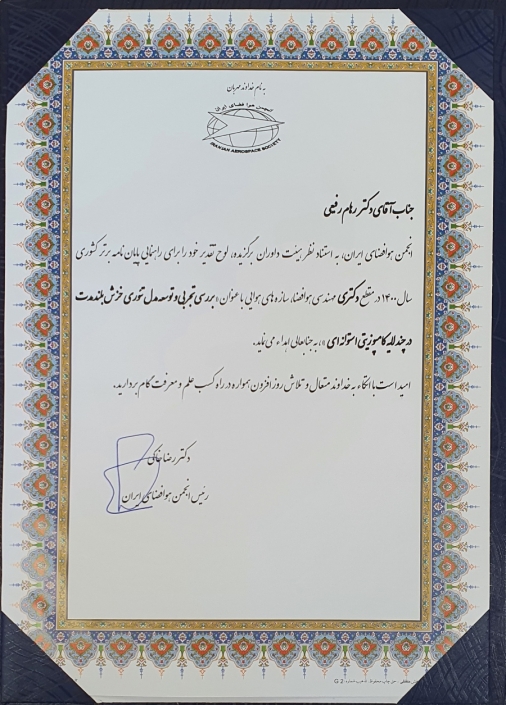 به نام خداوند مهربان
انجمن هوا فضای ایران
IRANIAN AEROSPACE SOCIETY
جناب آقای دکتر رهام رفیعی
انجمن هوافضای ایران، به استناد نظر هیئت داوران برگزیده، لوح تقدیر خود را برای راهنمایی پایان نامه برتر کشوری
سال ۱۴۰۰ در مقطع دکتری مهندسی هوافضا، سازه های هوایی با عنوان «بررسی تجربی و توسعه مدل تئوری خزش بلندمدت
در چندلایه کامپوزیتی استوانه ای»، به جنابعالی اهداء می نماید.
امید است با اتکاء به خداوند متعال و تلاش روزافزون همواره در راه کسب علم و معرفت گام بردارید.
دکتر رضا خاکی
رئیس انجمن هوافضای ایران